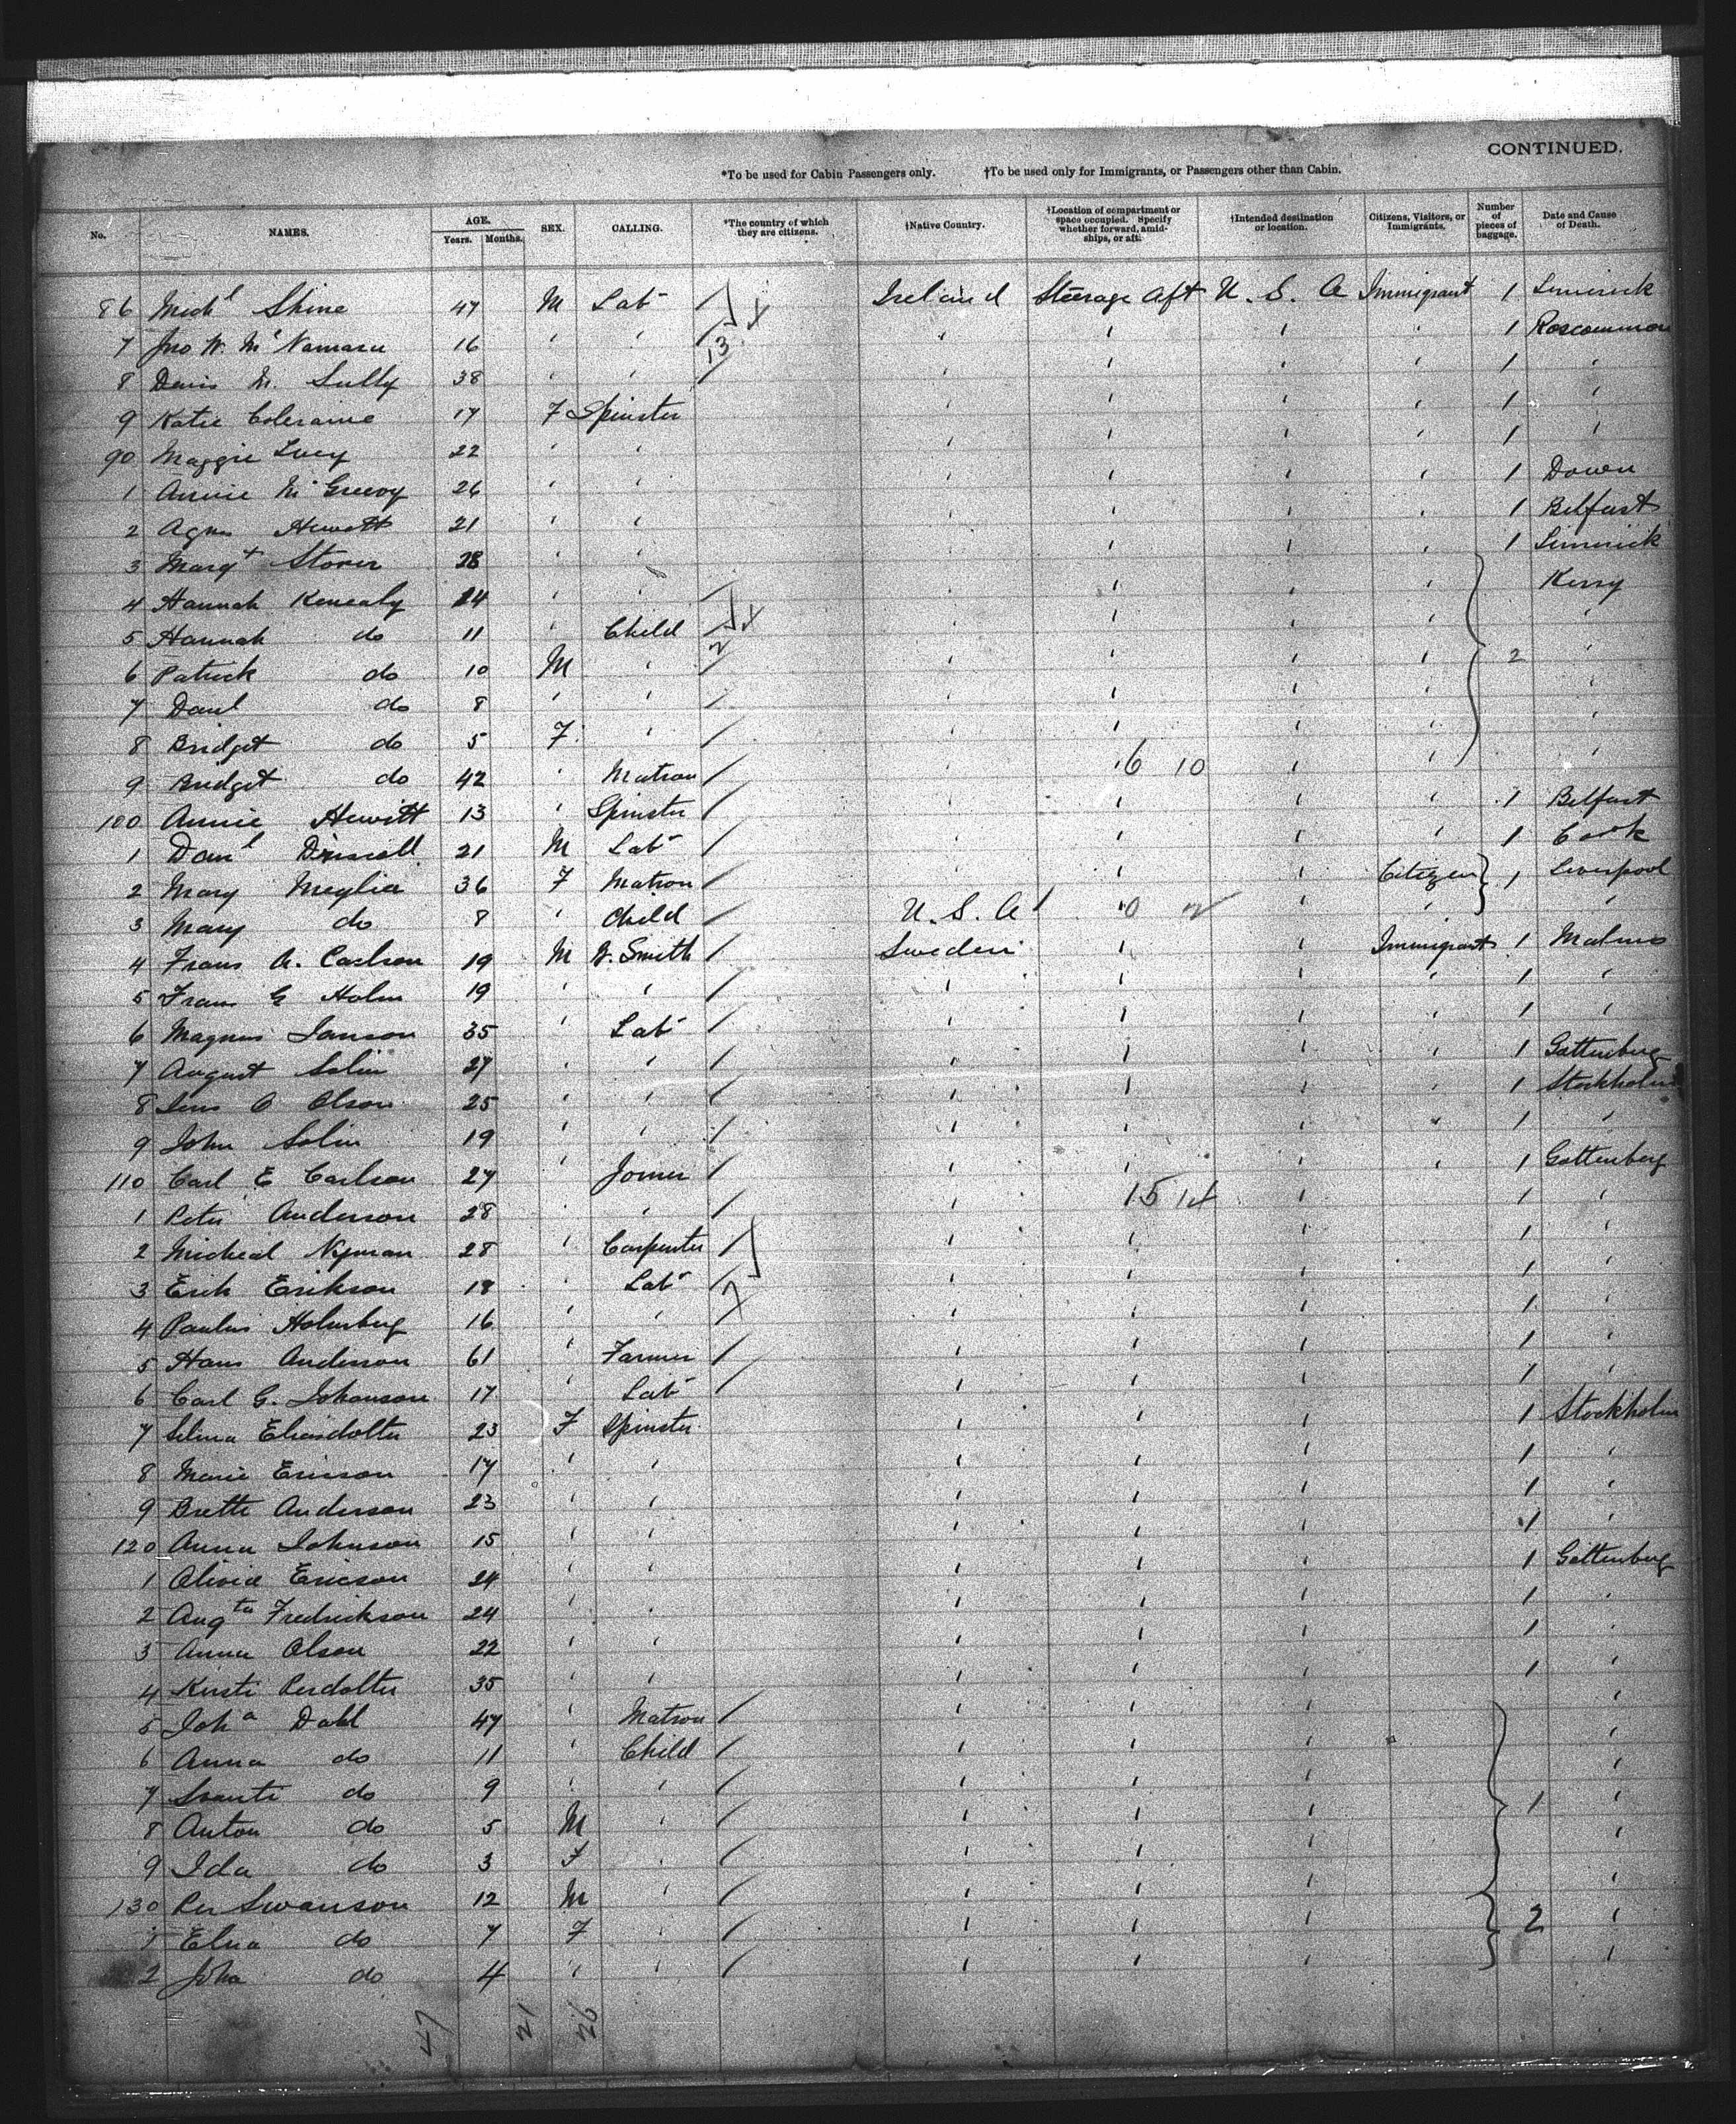 CONTINUED.
*To be used for Cabin Passengers only. †To be used only for Immigrants, or Passengers other than Cabin.
No. NAMES. AGE. Years. Months. SEX. CALLING. *The country of which they are citizens. †Native Country. †Location of compartment or space occupied. Specify whether forward, amidships, or aft. †Intended destination or location. Citizens, Visitors, or Immigrants. Number of pieces of baggage. Date and Cause of Death.
86 Michl Shine 47 M Labr Ireland Steerage Aft U. S. A Immigrant 1 Limerick
7 Jno W. McNamara 16 ' ' 13 ' ' ' ' 1 Roscommon
8 38 ' ' ' ' ' ' 1 '
9 Katie Coleraine 17 F Spinster ' ' ' ' 1 '
90 Maggie Lucy 22 ' ' ' ' ' ' 1 '
1 Annie McGreevy 26 ' ' ' ' ' ' 1 Down
2 Agnes Hewitt 21 ' ' ' ' ' ' 1 Belfast
3 Margt 28 ' ' ' ' ' ' 1 Limerick
4 Hannah Kenealy 24 ' ' ' ' ' ' Kerry
5 Hannah do 11 ' Child ' ' ' ' '
6 Patrick do 10 M ' ' ' ' ' 2 '
7 Danl do 8 ' ' ' ' ' ' '
8 Bridget do 5 F ' ' ' ' ' '
9 Bridget do 42 ' Matron ' ' 6 10 ' ' '
100 Annie Hewitt 13 ' Spinster ' ' ' ' 1 Belfast
1 Danl Driscoll 21 M Labr ' ' ' ' 1 Cork
2 Mary Meglia 36 F Matron ' ' ' Citizen 1 Liverpool
3 Mary do 8 ' Child U. S. A ' 0 2 ' ' '
4 Frans A. Carlson 19 M B. Smith Sweden ' ' Immigrants 1 Malmo
5 Frans G Holm 19 ' ' ' ' ' ' 1 '
6 Magnus Janson 35 ' Labr ' ' ' ' 1 '
7 August Solin 27 ' ' ' ' ' ' 1 Gottenberg
8 Olson 25 ' ' ' ' ' ' 1 Stockholm
9 John Solin 19 ' ' ' ' ' " 1 '
110 Carl E Carlson 27 ' Joiner ' ' ' ' 1 Gottenberg
1 Peter Anderson 28 ' ' ' 15 14 ' 1 '
2 Micheal Nyman 28 ' Carpenter ' ' ' 1 '
3 Erik Erikson 18 ' Labr 7 ' ' ' 1 '
4 Paulus Holmberg 16 ' ' ' ' ' 1 '
5 Hans Anderson 61 ' Farmer ' ' ' 1 '
6 Carl G. Johanson 17 ' Labr ' ' ' 1 '
7 Selma Eliasdotter 23 F Spinster ' ' ' 1 Stockholm
8 Marie Ericson 17 ' ' ' ' ' 1 '
9 Anderson 23 ' ' ' ' ' 1 '
120 Anna Johnson 15 ' ' ' ' ' 1 '
1 Olivia Ericson 24 ' ' ' ' ' 1 Gottenberg
2 Augta Fredrickson 24 ' ' ' ' ' 1 '
3 Anna Olson 22 ' ' ' ' ' 1 '
4 Kersti Perdotter 35 ' ' ' ' ' 1 '
5 Joha Dahl 47 ' Matron ' ' ' '
6 Anna do 11 ' Child ' ' ' '
7 do 9 ' ' ' ' ' 1 '
8 Anton do 5 M ' ' ' ' '
9 Ida do 3 F ' ' ' ' '
130 Per Swanson 12 M ' ' ' ' '
1 Elna do 7 F ' ' ' ' 2 '
2 Joha do 4 ' ' ' ' ' '
47 21 26